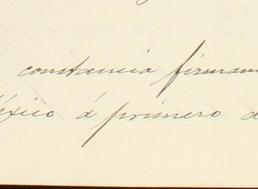 constancia firmam
éxico á primero d